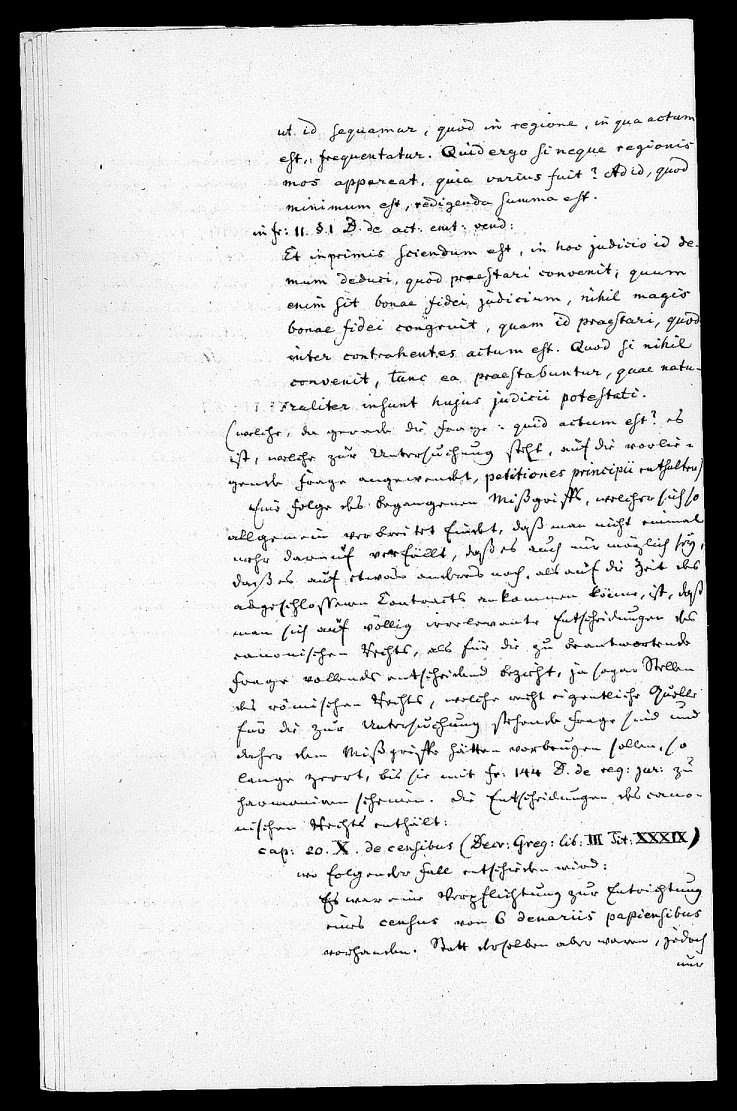 ut id sequamur, quod in regione, in qua actum
est, frequentatur. Quid ergo si neque regionis
mos appareat, quia varius fuit? Ad id, quod
minimum est, redigenda summa est.
in fr: 11. §. 1 D. de act: emt: vend:
Et inprimis sciendum est, in hoc judicio id de-
mum deduci, quod praestari convenit; quum
enim sit bonae fidei judicium, nihil magis
bonae fidei congruit, quam id praestari, quod
inter contrahentes actum est. Quod si nihil
convenit, tunc ea praestabuntur, quae natu-
raliter insunt hujus judicii potestati.
(welche, da gerade die Frage: quid actum est? es
ist, welche zur Untersuchung steht, auf die vorlie-
gende Frage angewendet, petitiones principii enthalten)
Eine Folge des begangenen Mißgriffs, welcher sich so
allgemein verbreitet findet, daß man nicht einmal
mehr darauf verfällt, daß es auch nur möglich sey,
daß es auf etwas anderes noch, als auf die Zeit des
abgeschlossenen Contracts ankommen könne, ist, daß
man sich auf völlig irrelevante Entscheidungen des
canonischen Rechts, als für die zu beantwortende
Frage vollends entscheidend bezieht, ja sogar Stellen
des römischen Rechts, welche recht eigentliche Quelle
für die zur Untersuchung stehende Frage sind und
daher dem Mißgriffe hätten vorbeugen sollen, so
lange zerrt, bis sie mit fr: 144 D. de reg: jur: zu
harmoniren scheinen. Die Entscheidungen des cano-
nischen Rechts enthält:
cap: 20. X. de censibus (Decr: Greg: lib: III Tit: XXXIX)
wo folgender Fall entschieden wird:
Es war eine Verpflichtung zur Entrichtung
eines census von 6 denariis papiensibus
vorhanden. Statt derselben aber waren, jedoch
nur